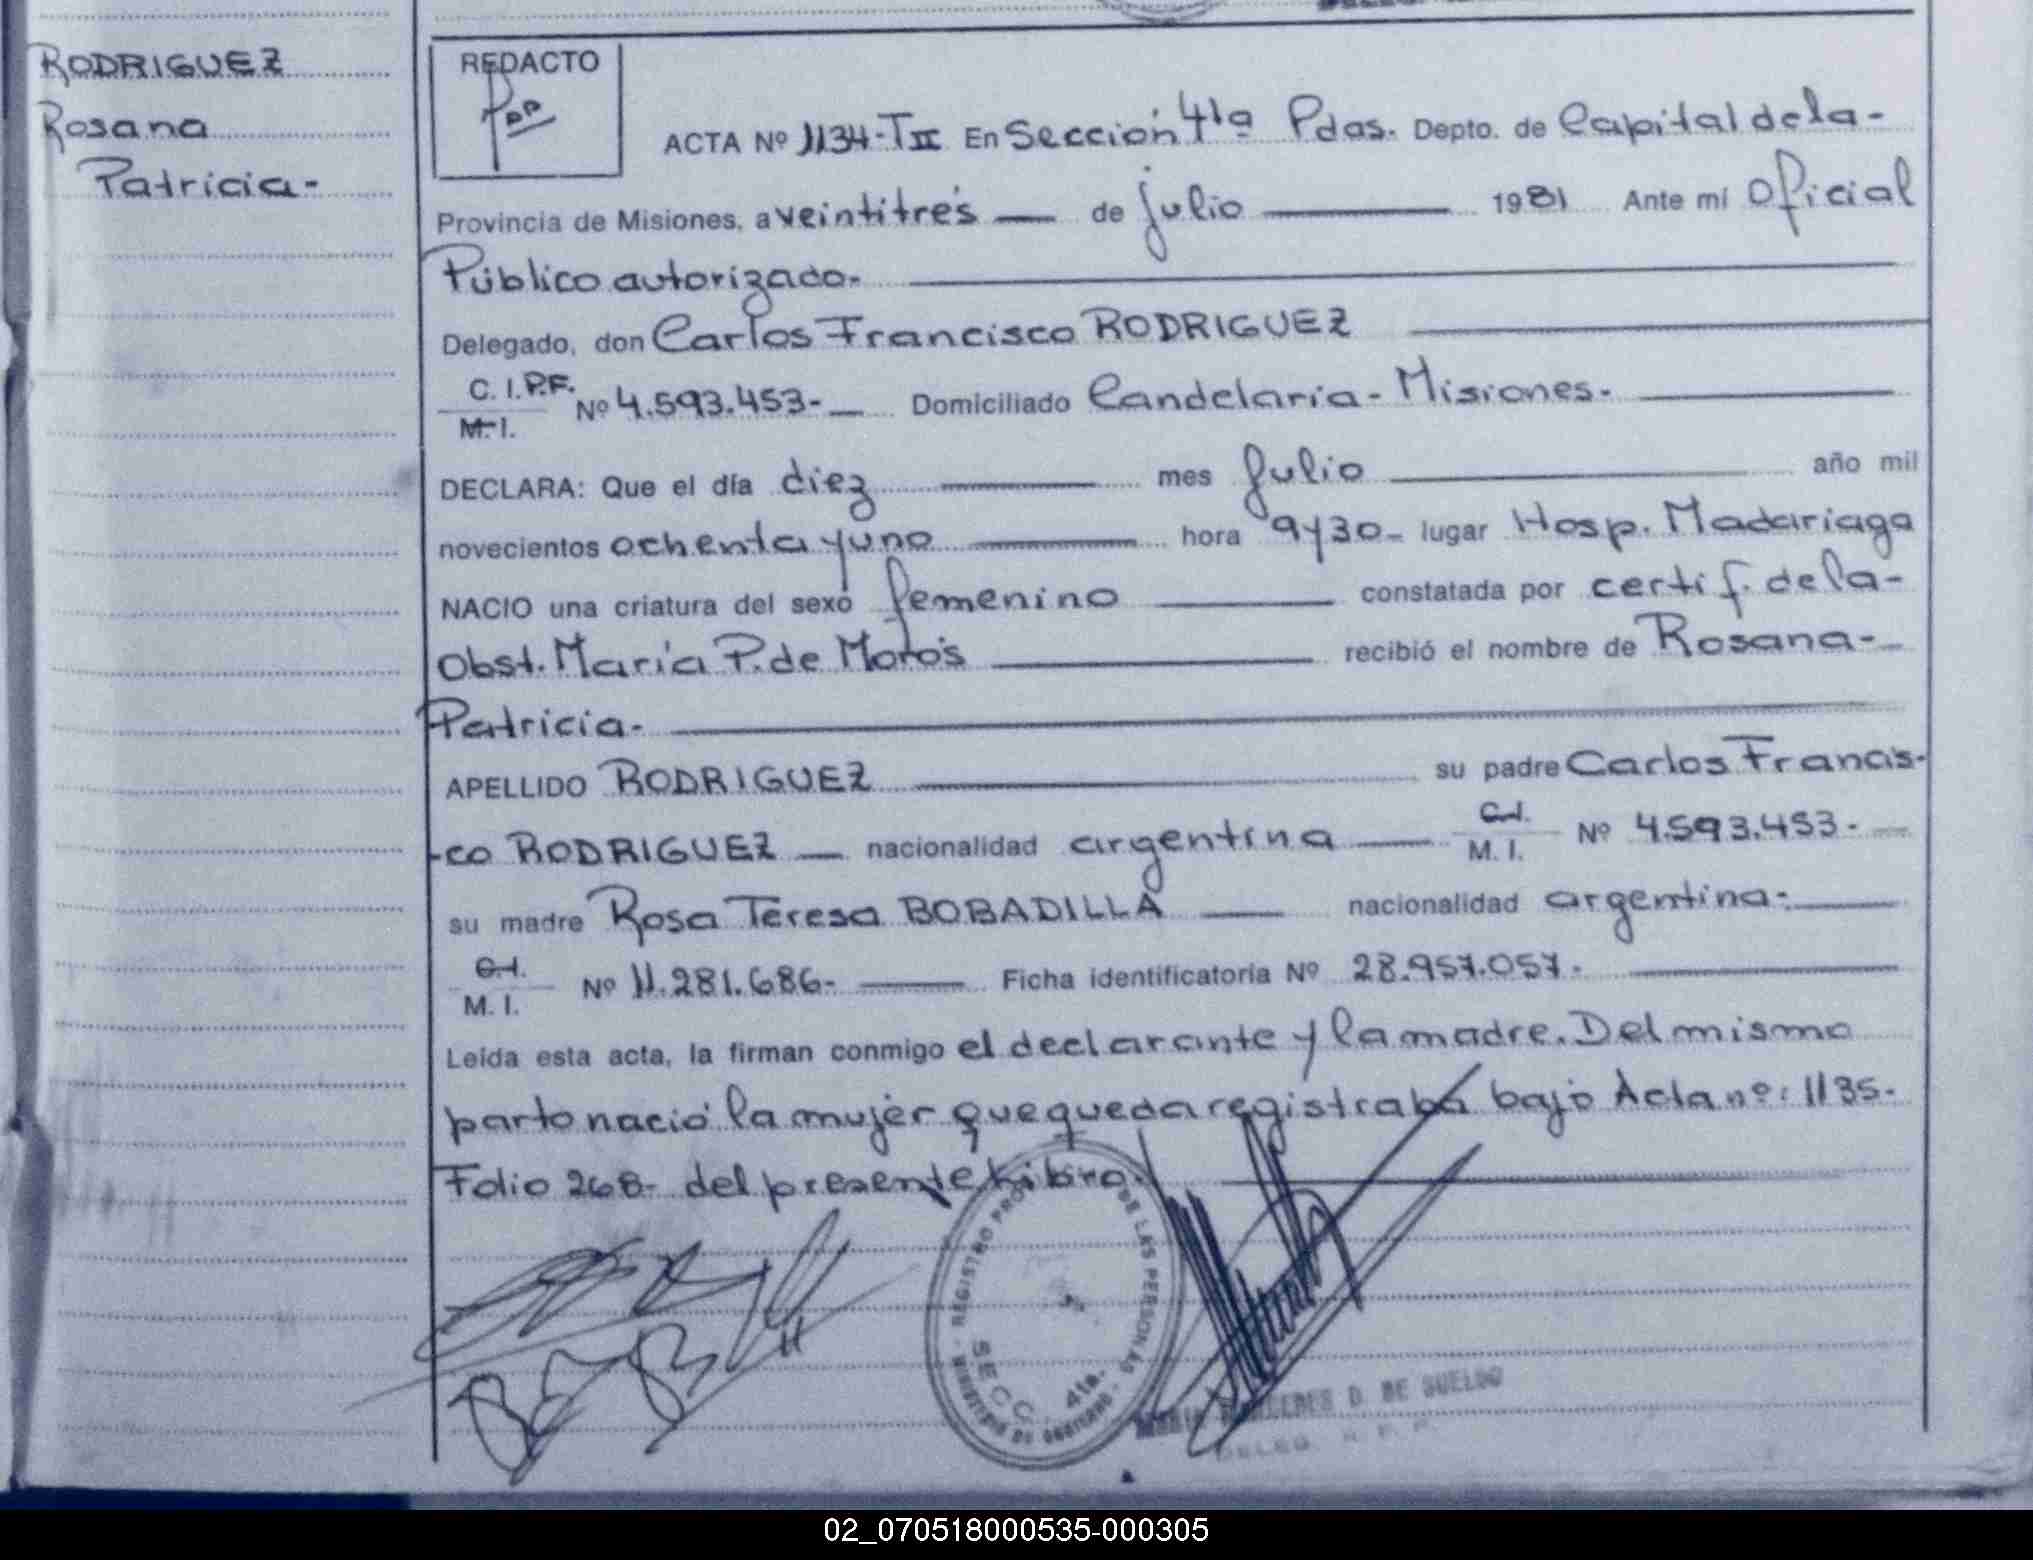 RODRIGUEZ
Rosana
Patricia-
REDACTO
ACTA Nº 1134-TII En Sección 4ta Pdas. Depto. de Capital de la-
Provincia de Misiones, a veintitrés — de julio — 1981 Ante mí Oficial
Público autorizado.
Delegado, don Carlos Francisco RODRIGUEZ
C. I. P.F.
M. I. Nº 4.593.453- Domiciliado Candelaria - Misiones.
DECLARA: Que el día diez mes Julio año mil
novecientos ochenta y uno hora 9 y 30- lugar Hosp. Madariaga
NACIO una criatura del sexo femenino constatada por certif. de la-
Obst. María P. de recibió el nombre de Rosana-
Patricia.
APELLIDO RODRIGUEZ su padre Carlos Francis-
-co RODRIGUEZ — nacionalidad argentina — C. I. M. I. Nº 4.593.453-
su madre Rosa Teresa BOBADILLA nacionalidad argentina-
C. I. M. I. Nº 11.281.686- Ficha identificatoria Nº 28.957.057-
Leída esta acta, la firman conmigo el declarante y la madre. Del mismo
parto nació la mujer que queda registraba bajo Acta nº: 1135-
Folio 268- del presente Libro.
REGISTRO PROV DE LAS PERSONAS
SECC. 4ta.
MINISTERIO DE GOBIERNO
D. DE SUELDO
DELEG. R. P. P.
02_070518000535-000305